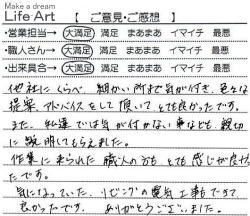 Make a dream
Life Art 【 ご意見・ご感想 】
・営業担当→ 大満足 満足 まあまあ イマイチ 最悪
・職人さん→ 大満足 満足 まあまあ イマイチ 最悪
・出来具合→ 大満足 満足 まあまあ イマイチ 最悪
他社にくらべ、細かい所まで気が付き、色々な
提案、アドバイスをして頂いてとても良かったです。
また、私達では気が付かない事なども、親切
に説明してもらえました。
作業に来られた職人の方も、とても感じが良かっ
たです。
気になっていた、リビングの電気工事もできて
良かったです。 ありがとうございました。